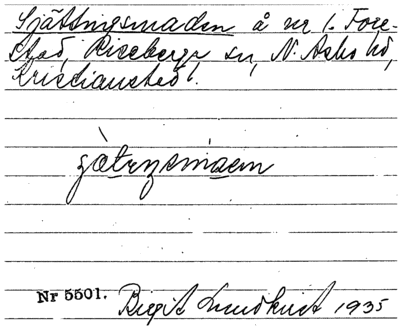 Sjättingsmaden å nr 1. Fore-
stad, Riseberga sn, N. Åsbo hd,
Kristianstad l.
Nr 5501. Birgit Lundkvist 1935